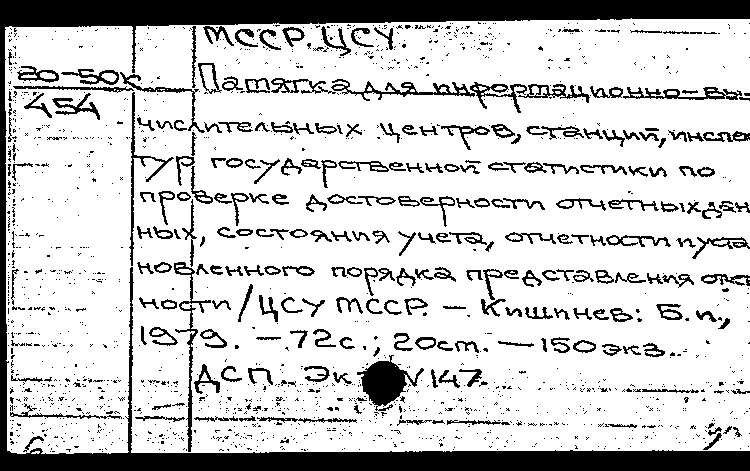 МССР. ЦСУ.
20-50к Памятка для информационно-вы-
454 числительных центров, станций, инспек
тур государственной статистики по
проверке достоверности отчетных дан
ных, состояния учета, отчетности и уста
новленного порядка представления отчет
ности / ЦСУ МССР. — Кишинев: Б.и.,
1979. — 72с.; 20см. — 150экз.
ДСП Экз N 147.